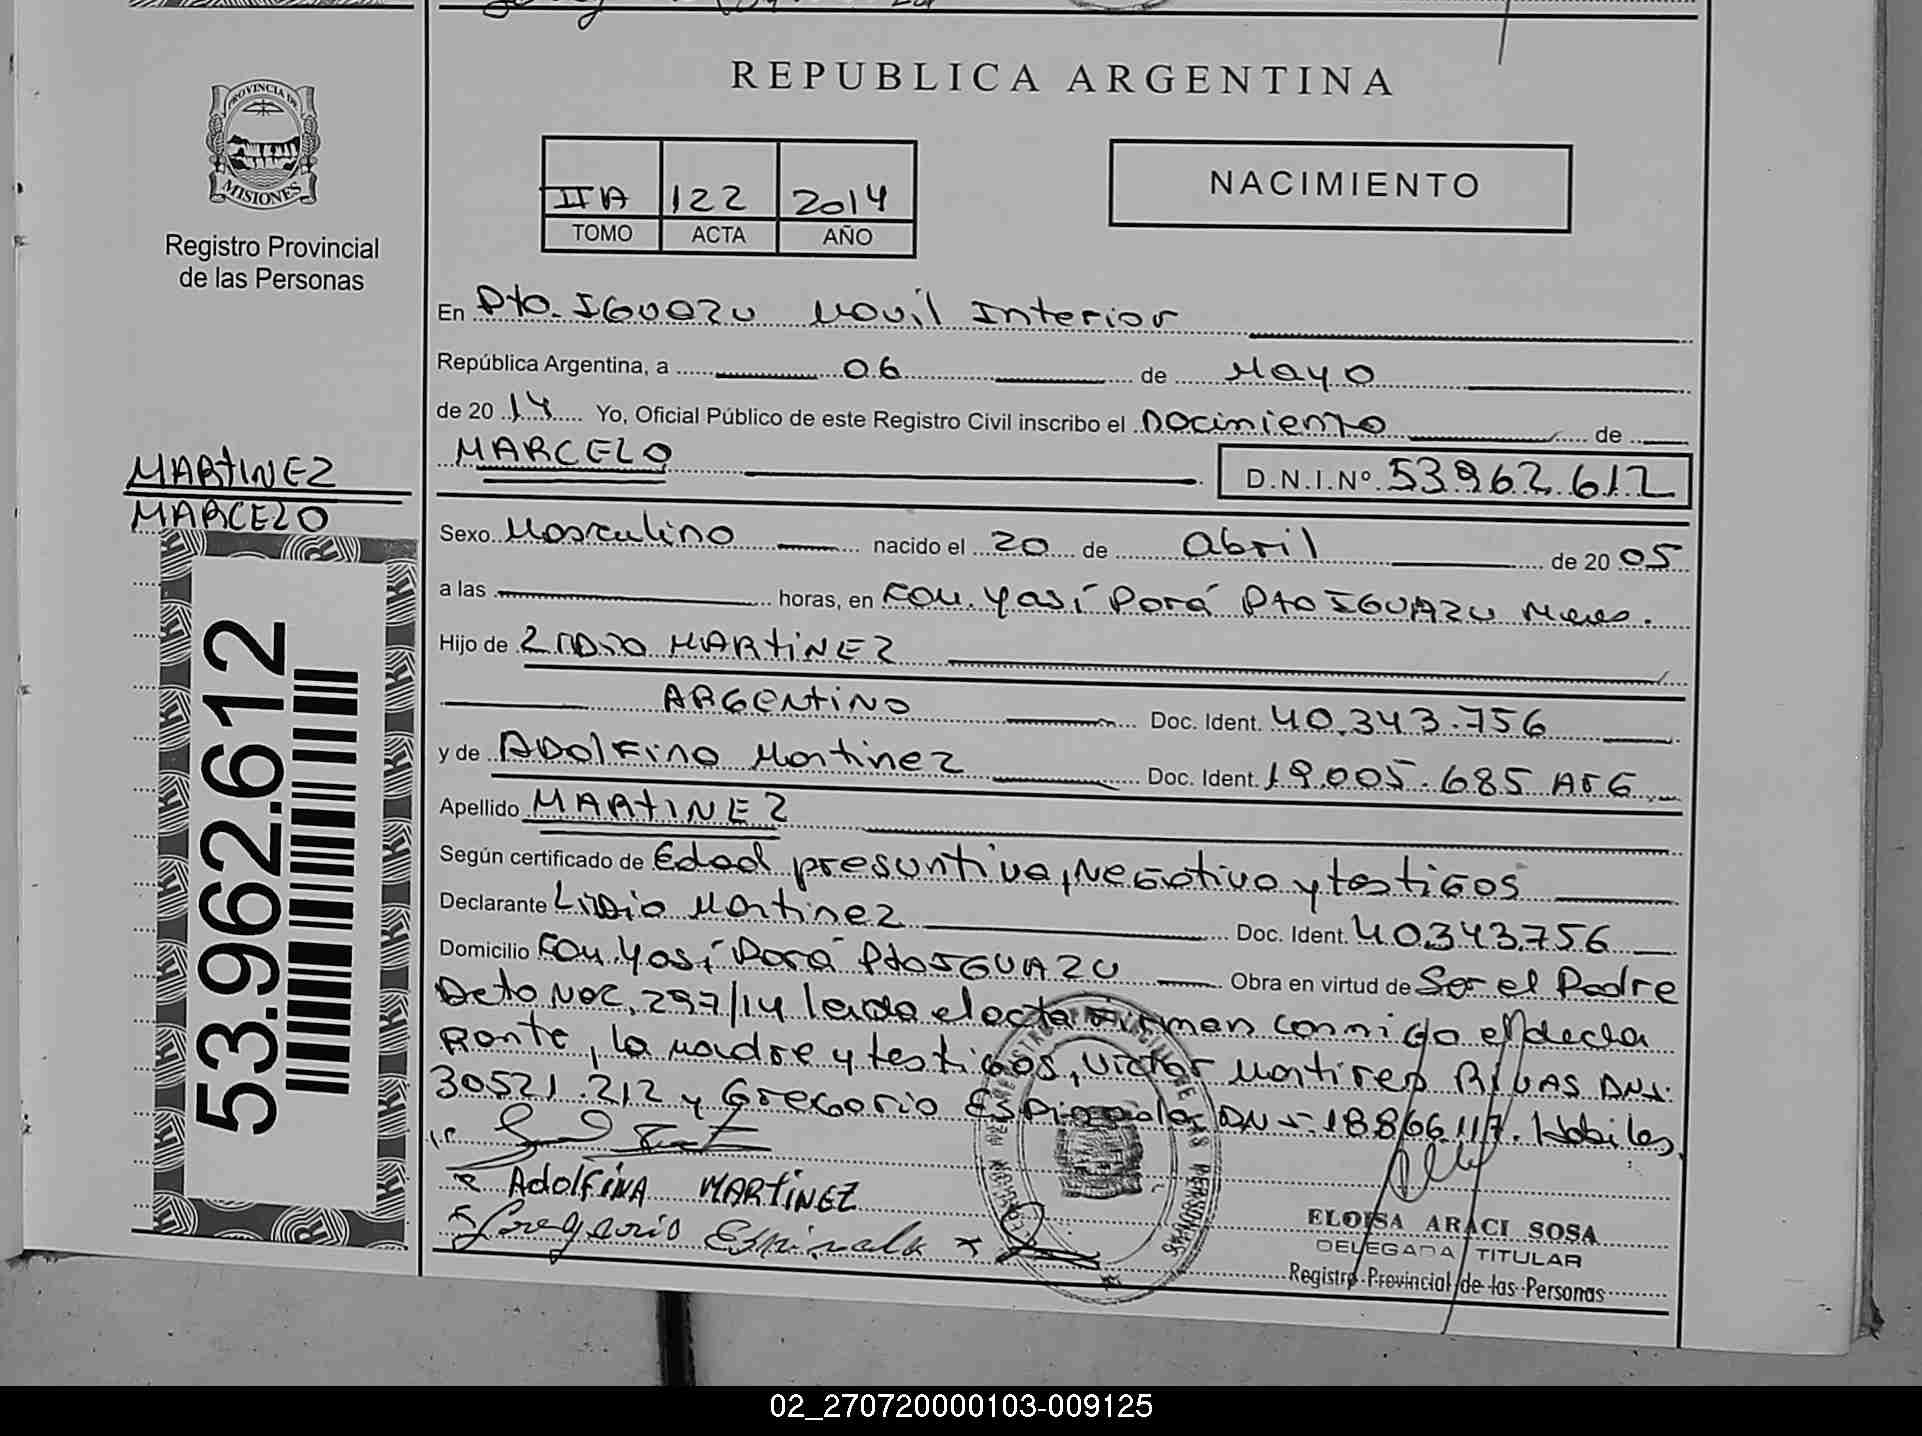 REPUBLICA ARGENTINA
PROVINCIA DE
MISIONES
Registro Provincial
de las Personas
IIA 122 2014
TOMO ACTA AÑO
NACIMIENTO
En Pto. IGUAZU Movil Interior
República Argentina, a 06 de Mayo
de 20 14 Yo, Oficial Público de este Registro Civil inscribo el nacimiento de
MARCELO D.N.I.Nº 53.962.612
MARTINEZ
MARCELO
Sexo Masculino nacido el 20 de abril de 20 05
a las horas, en Fou. Yasí Porá Pto IGUAZU Mnes.
Hijo de LIDIO MARTINEZ
ARGENTINO Doc. Ident. 40.343.756
y de ADOLFINA Martinez Doc. Ident. 19.005.685 ARG
Apellido MARTINEZ
Según certificado de Edad presuntiva, Negativo y testigos
Declarante Lidio Martinez Doc. Ident. 40.343.756
Domicilio Fou. Yasí Porá Pto IGUAZU Obra en virtud de Ser el Padre
Dcto Nac. 297/14 leida el acta firman conmigo el decla
Rante, la madre y testigos, Victor Martires RIVAS DNI.
30521.212 y Gregorio Espinola DNI 18.866.117. Habiles.
Adolfina MARTINEZ
Gregorio Espinola
ELOISA ARACI SOSA
DELEGADA TITULAR
Registro Provincial de las Personas
53.962.612
02_270720000103-009125